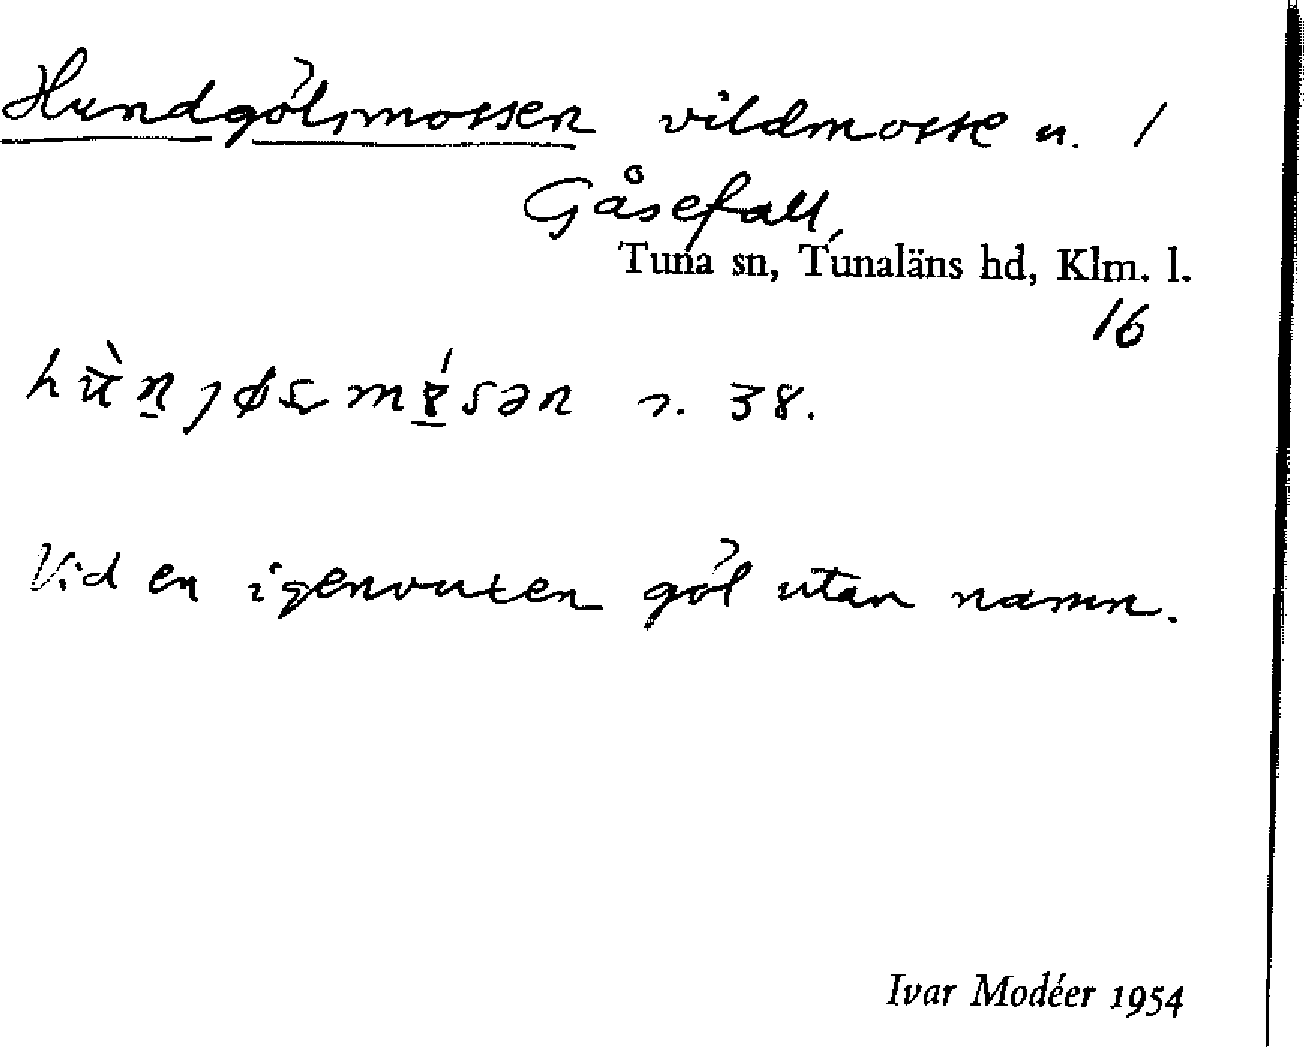 Hundgölsmossen vildmosse n. 1
Gåsefall,
Tuna sn, Tunaläns hd, Klm. l.
16
s. 38.
Vid en igenvuxen göl utan namn.
Ivar Modéer 1954